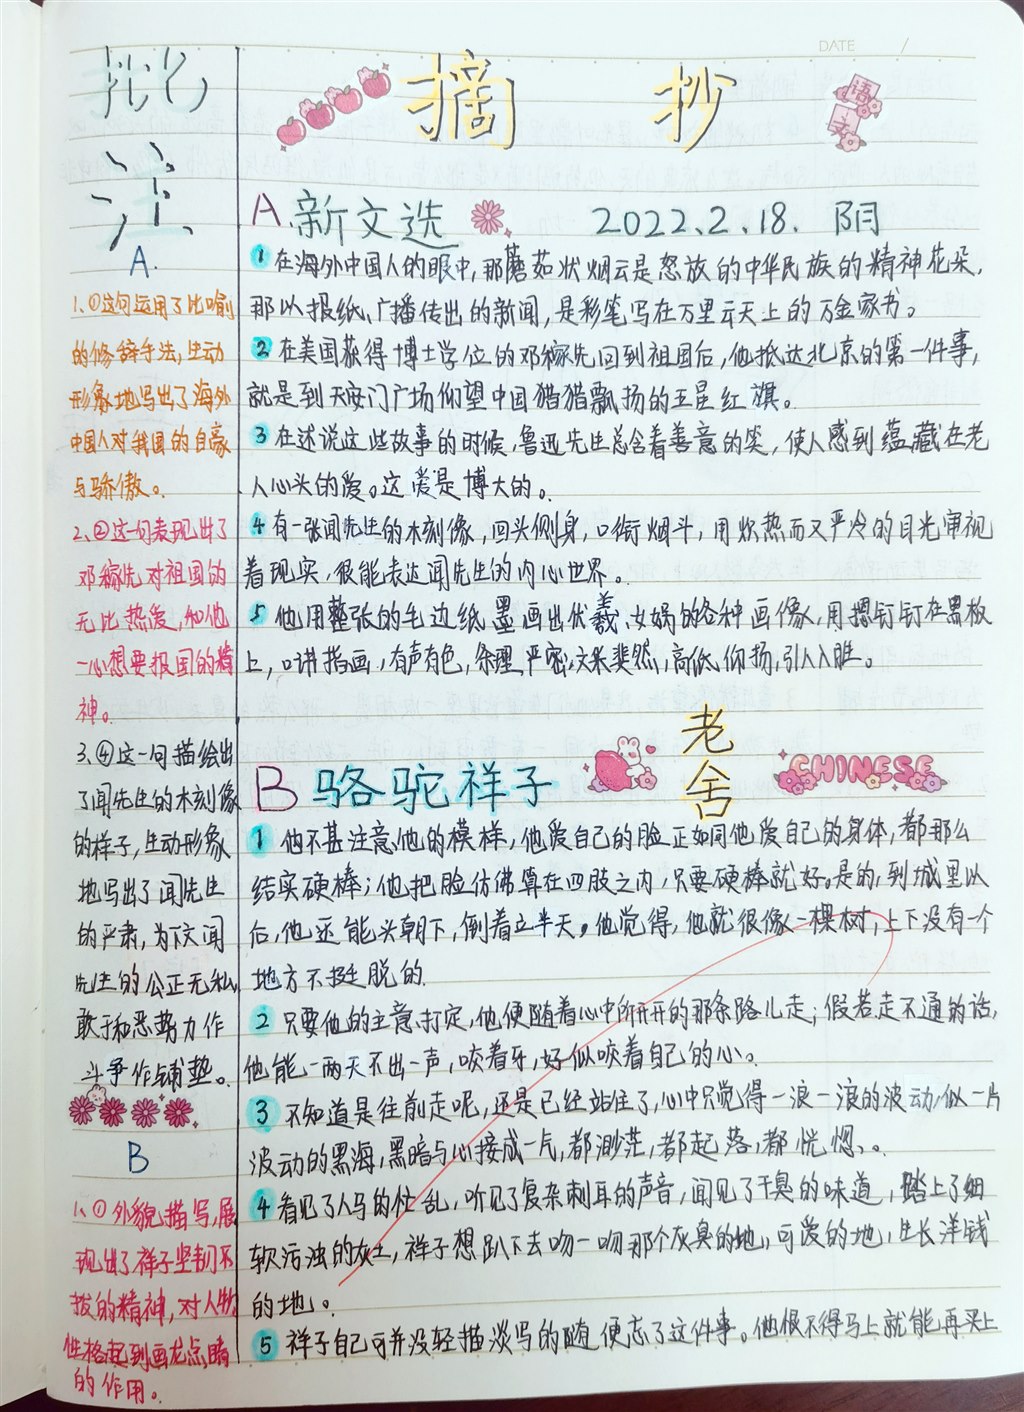 DATE /
摘 抄
语文
批注
A.
1、①这句运用了比喻
的修辞手法,生动
形象地写出了海外
中国人对我国的自豪
与骄傲。
2、②这一句表现出了
邓稼先对祖国的
无比热爱,和他
一心想要报国的精
神。
3、④这一句描绘出
了闻先生的木刻像
的样子,生动形象
地写出了闻先生
的严肃,为下文闻
先生的公正无私,
敢于和恶势力作
斗争作铺垫。
B
1、①外貌描写,展
现出了祥子坚韧不
拔的精神,对人物
性格起到画龙点睛
的作用。
A.新文选 2022.2.18. 阴
①在海外中国人的眼中,那蘑茹状烟云是怒放的中华民族的精神花朵,
那以报纸、广播传出的新闻,是彩笔写在万里云天上的万金家书。
②在美国获得博士学位的邓稼先回到祖国后,他抵达北京的第一件事,
就是到天安门广场仰望中国猎猎飘扬的五星红旗。
③在述说这些故事的时候,鲁迅先生总含着善意的笑,使人感到蕴藏在老
人心头的爱。这爱是博大的。
④有一张闻先生的木刻像,回头侧身,口衔烟斗,用炽热而又严冷的目光审视
着现实,很能表达闻先生的内心世界。
5他用整张的毛边纸墨画出伏羲、女娲的各种画像,用摁钉钉在黑板
上,口讲指画,有声有色,条理严密,文采斐然,高低仰扬,引人入胜。
B骆驼祥子
老舍
CHINESE
1他不甚注意他的模样,他爱自己的脸正如同他爱自己的身体,都那么
结实硬棒;他把脸仿佛算在四肢之内,只要硬棒就好。是的,到城里以
后,他还能头朝下,倒着立半天。他觉得,他就很像一棵树,上下没有一个
地方不挺脱的.
2只要他的主意打定,他便随着心中所开开的那条路儿走;假若走不通的话,
他能一两天不出一声,咬着牙,好似咬着自己的心。
3不知道是往前走呢,还是已经站住了,心中只觉得一浪一浪的波动,似一片
波动的黑海,黑暗与心接成一片,都渺茫,都起落,都恍惚、。
4看见了人马的忙乱,听见了复杂刺耳的声音,闻见了干臭的味道,踏上了细
软污浊的灰土,祥子想趴下去吻一吻那个灰臭的地,可爱的地,生长洋钱
的地。
5祥子自己可并没轻描淡写的随便忘了这件事。他恨不得马上就能再买上